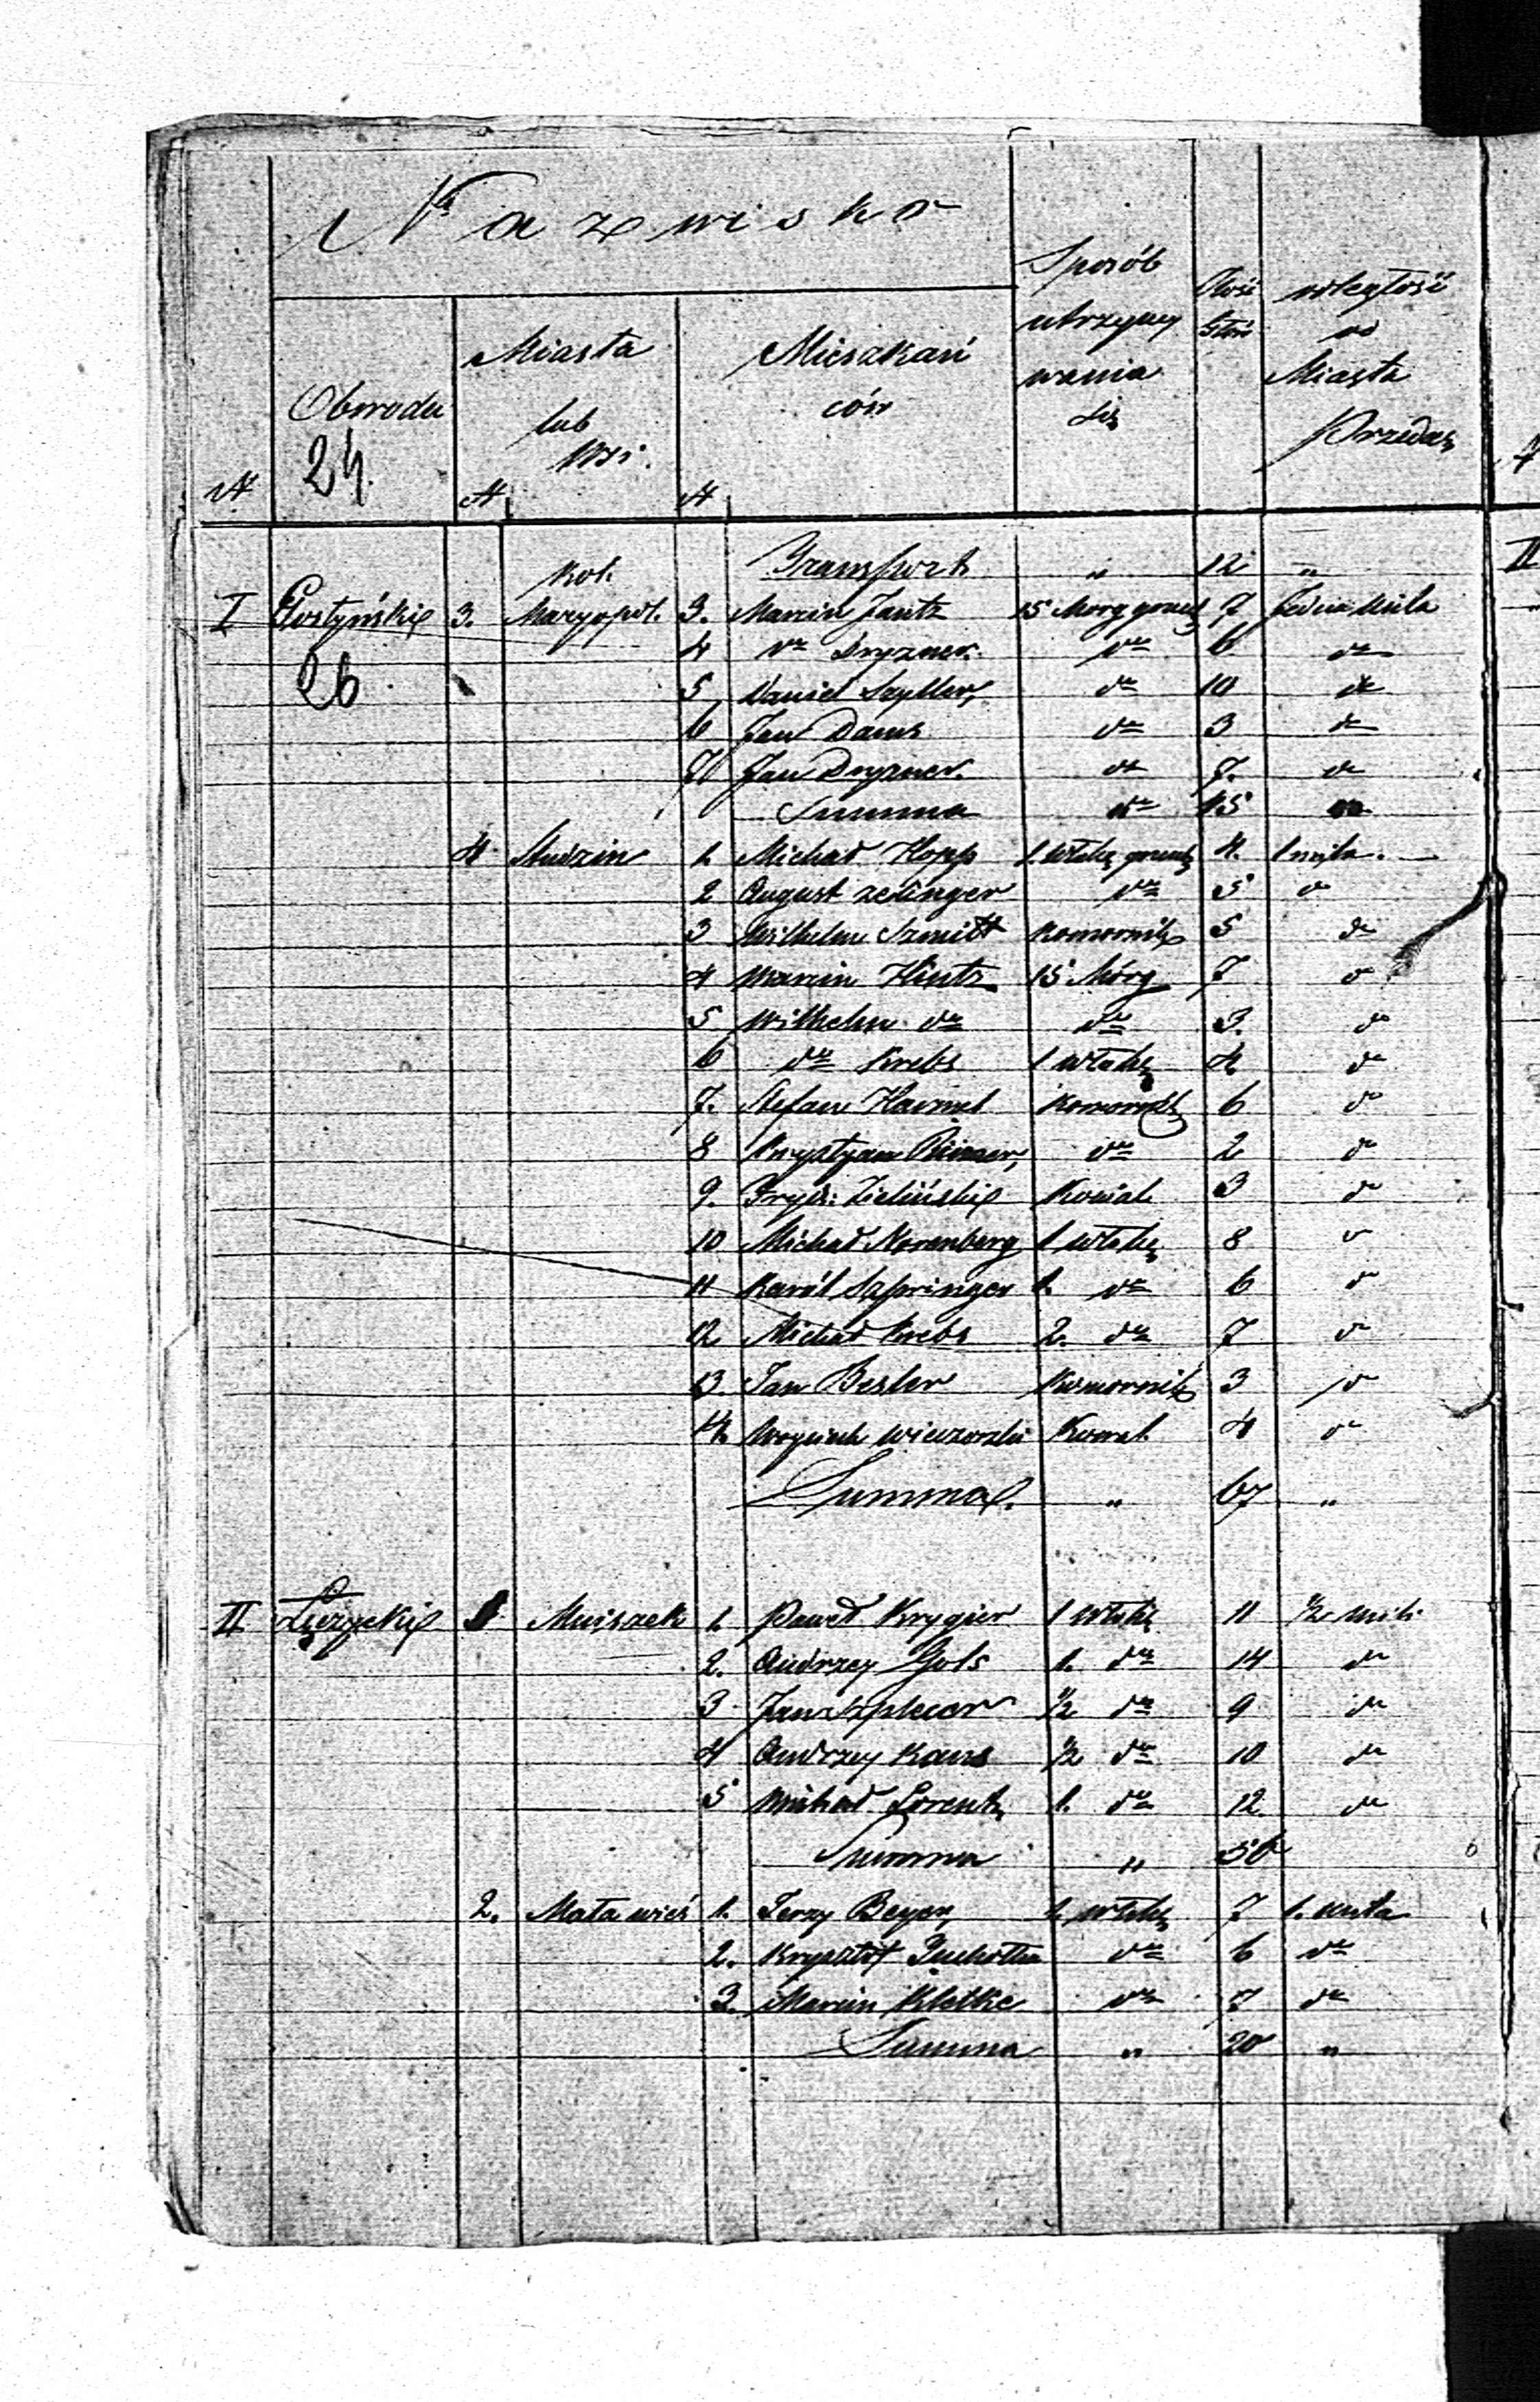 Nazwisko
N Obwodu N Miasta lub Wsi. N Mieszkańców Sposób utrzymywania się Ilość odległość od Miasta Przedecz
24.
Transport " 12 "
I Gostyński 3. Kol. Maryopol. 3. Marcin Jantz 15 Morg gruntu 7 jedna mila
26
4 do Dryzner do 6 do
5 Daniel do 10 do
6 Jan Dams do 3 do
7 Jan Dryzner do 7. do
Summa do 45
4 Studzin 1. Michał Hopp 1 włókę gruntu 4. 1 mila.
2 August Zedinger do 5 do
3 Wilhelm Szmitt Komornik 5 do
4 Marcin Hintz 15 Mórg 7 do
5 Wilhelm do do 3. do
6 do Krebs 1 włókę 4 do
7. Stefan Komornik 6 do
8 Krystyan do 2 do
9. Fryd: Zieliński Kowal 3 do
10 Michał Norenberg 1 włókę 8 do
11 Karól Szpringer 1. do 6 do
12 Michał Krebs 2. do 7 do
13. Jan Besler Komornik 3 do
14. Woyciech Kowal 4 do
Summa. " 67 "
II Łęczycki 1 Mniszek 1. Paweł Krygier 1 włókę 11 ½ mili
2. Andrzey Gols 1. do 14 do
3 Jan ½ do 9 do
4 Andrzey Kans ½ do 10 do
5 Michał Lorentz 1. do 12. do
Summa " 56
2. Mała wieś 1. Jerzy Beyer 1. włókę 7 1. mila
2. Krysztof do 6 do
3. Marcin Kletke do 7 do
Summa " 20 "